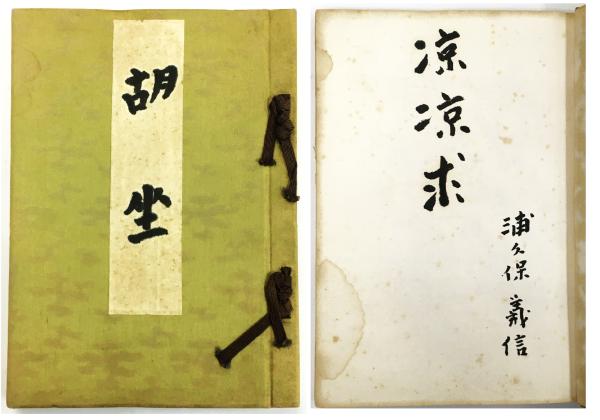 胡坐
凉凉求
浦久保義信